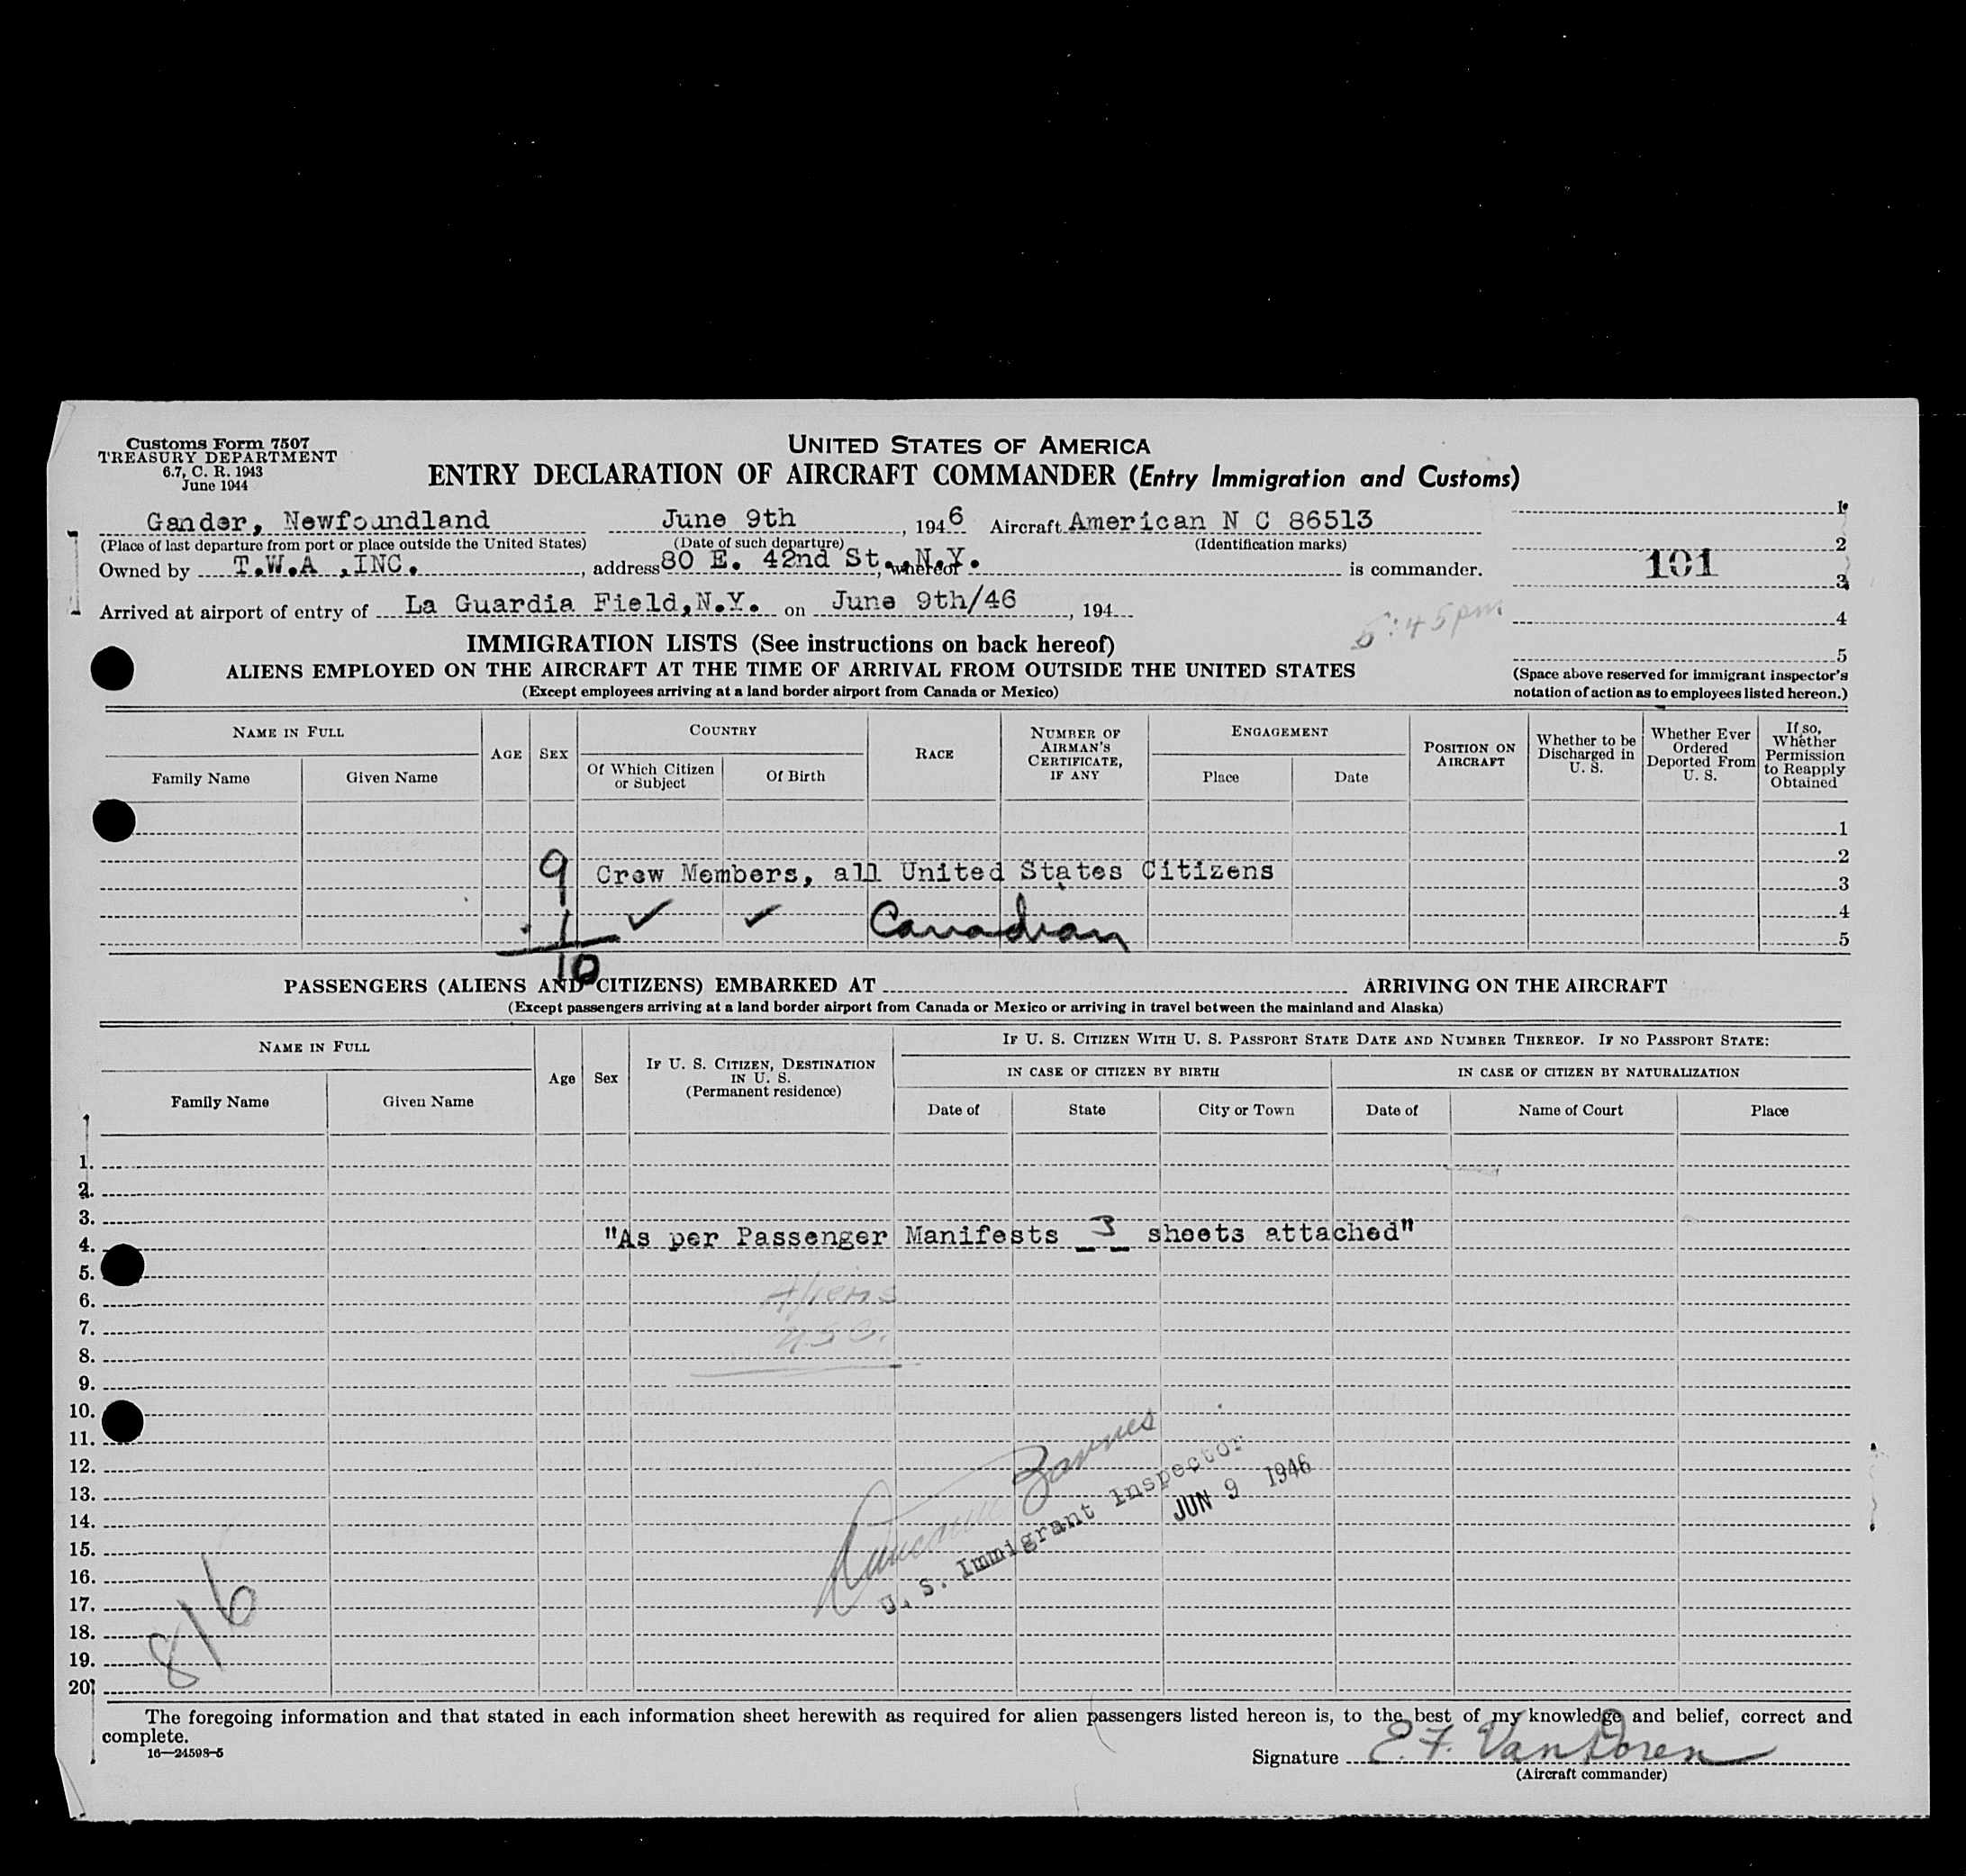 Customs Form 7507
TREASURY DEPARTMENT
6.7, C. R. 1943
June 1944
UNITED STATES OF AMERICA
ENTRY DECLARATION OF AIRCRAFT COMMANDER (Entry Immigration and Customs)
Gander, Newfoundland June 9th, 1946 Aircraft American N C 86513
(Place of last departure from port or place outside the United States) (Date of such departure) (Identification marks)
Owned by T.W.A ,INC., address 80 E. 42nd St., N.Y. , whereof is commander.
Arrived at airport of entry of La Guardia Field,N.Y. on June 9th/46, 194
1
2
101
3
4
5
5:45pm
(Space above reserved for immigrant inspector's
notation of action as to employees listed hereon.)
IMMIGRATION LISTS (See instructions on back hereof)
ALIENS EMPLOYED ON THE AIRCRAFT AT THE TIME OF ARRIVAL FROM OUTSIDE THE UNITED STATES
(Except employees arriving at a land border airport from Canada or Mexico)
NAME IN FULL
Family Name Given Name
AGE SEX
COUNTRY
Of Which Citizen or Subject
Of Birth
RACE
NUMBER OF AIRMAN'S CERTIFICATE, IF ANY
ENGAGEMENT
Place Date
POSITION ON AIRCRAFT
Whether to be Discharged in U. S.
Whether Ever Ordered Deported From U. S.
If so, Whether Permission to Reapply Obtained
1
2
9 Crew Members, all United States Citizens
3
4
1 ✓ ✓ Canadian
5
10
PASSENGERS (ALIENS AND CITIZENS) EMBARKED AT ARRIVING ON THE AIRCRAFT
(Except passengers arriving at a land border airport from Canada or Mexico or arriving in travel between the mainland and Alaska)
NAME IN FULL
Family Name Given Name
Age Sex
IF U. S. CITIZEN, DESTINATION IN U. S.
(Permanent residence)
IF U. S. CITIZEN WITH U. S. PASSPORT STATE DATE AND NUMBER THEREOF. IF NO PASSPORT STATE:
IN CASE OF CITIZEN BY BIRTH IN CASE OF CITIZEN BY NATURALIZATION
Date of State City or Town Date of Name of Court Place
1.
2.
3.
"As per Passenger Manifests 3 sheets attached"
4.
5.
Aliens
6.
USC.
7.
8.
9.
10.
11.
12.
13.
14.
15.
16.
17.
18.
19.
20.
Barnes
U. S. Immigrant Inspector
JUN 9 1946
816
The foregoing information and that stated in each information sheet herewith as required for alien passengers listed hereon is, to the best of my knowledge and belief, correct and
complete.
16—24598-5
Signature E. F. VanDoren
(Aircraft commander)